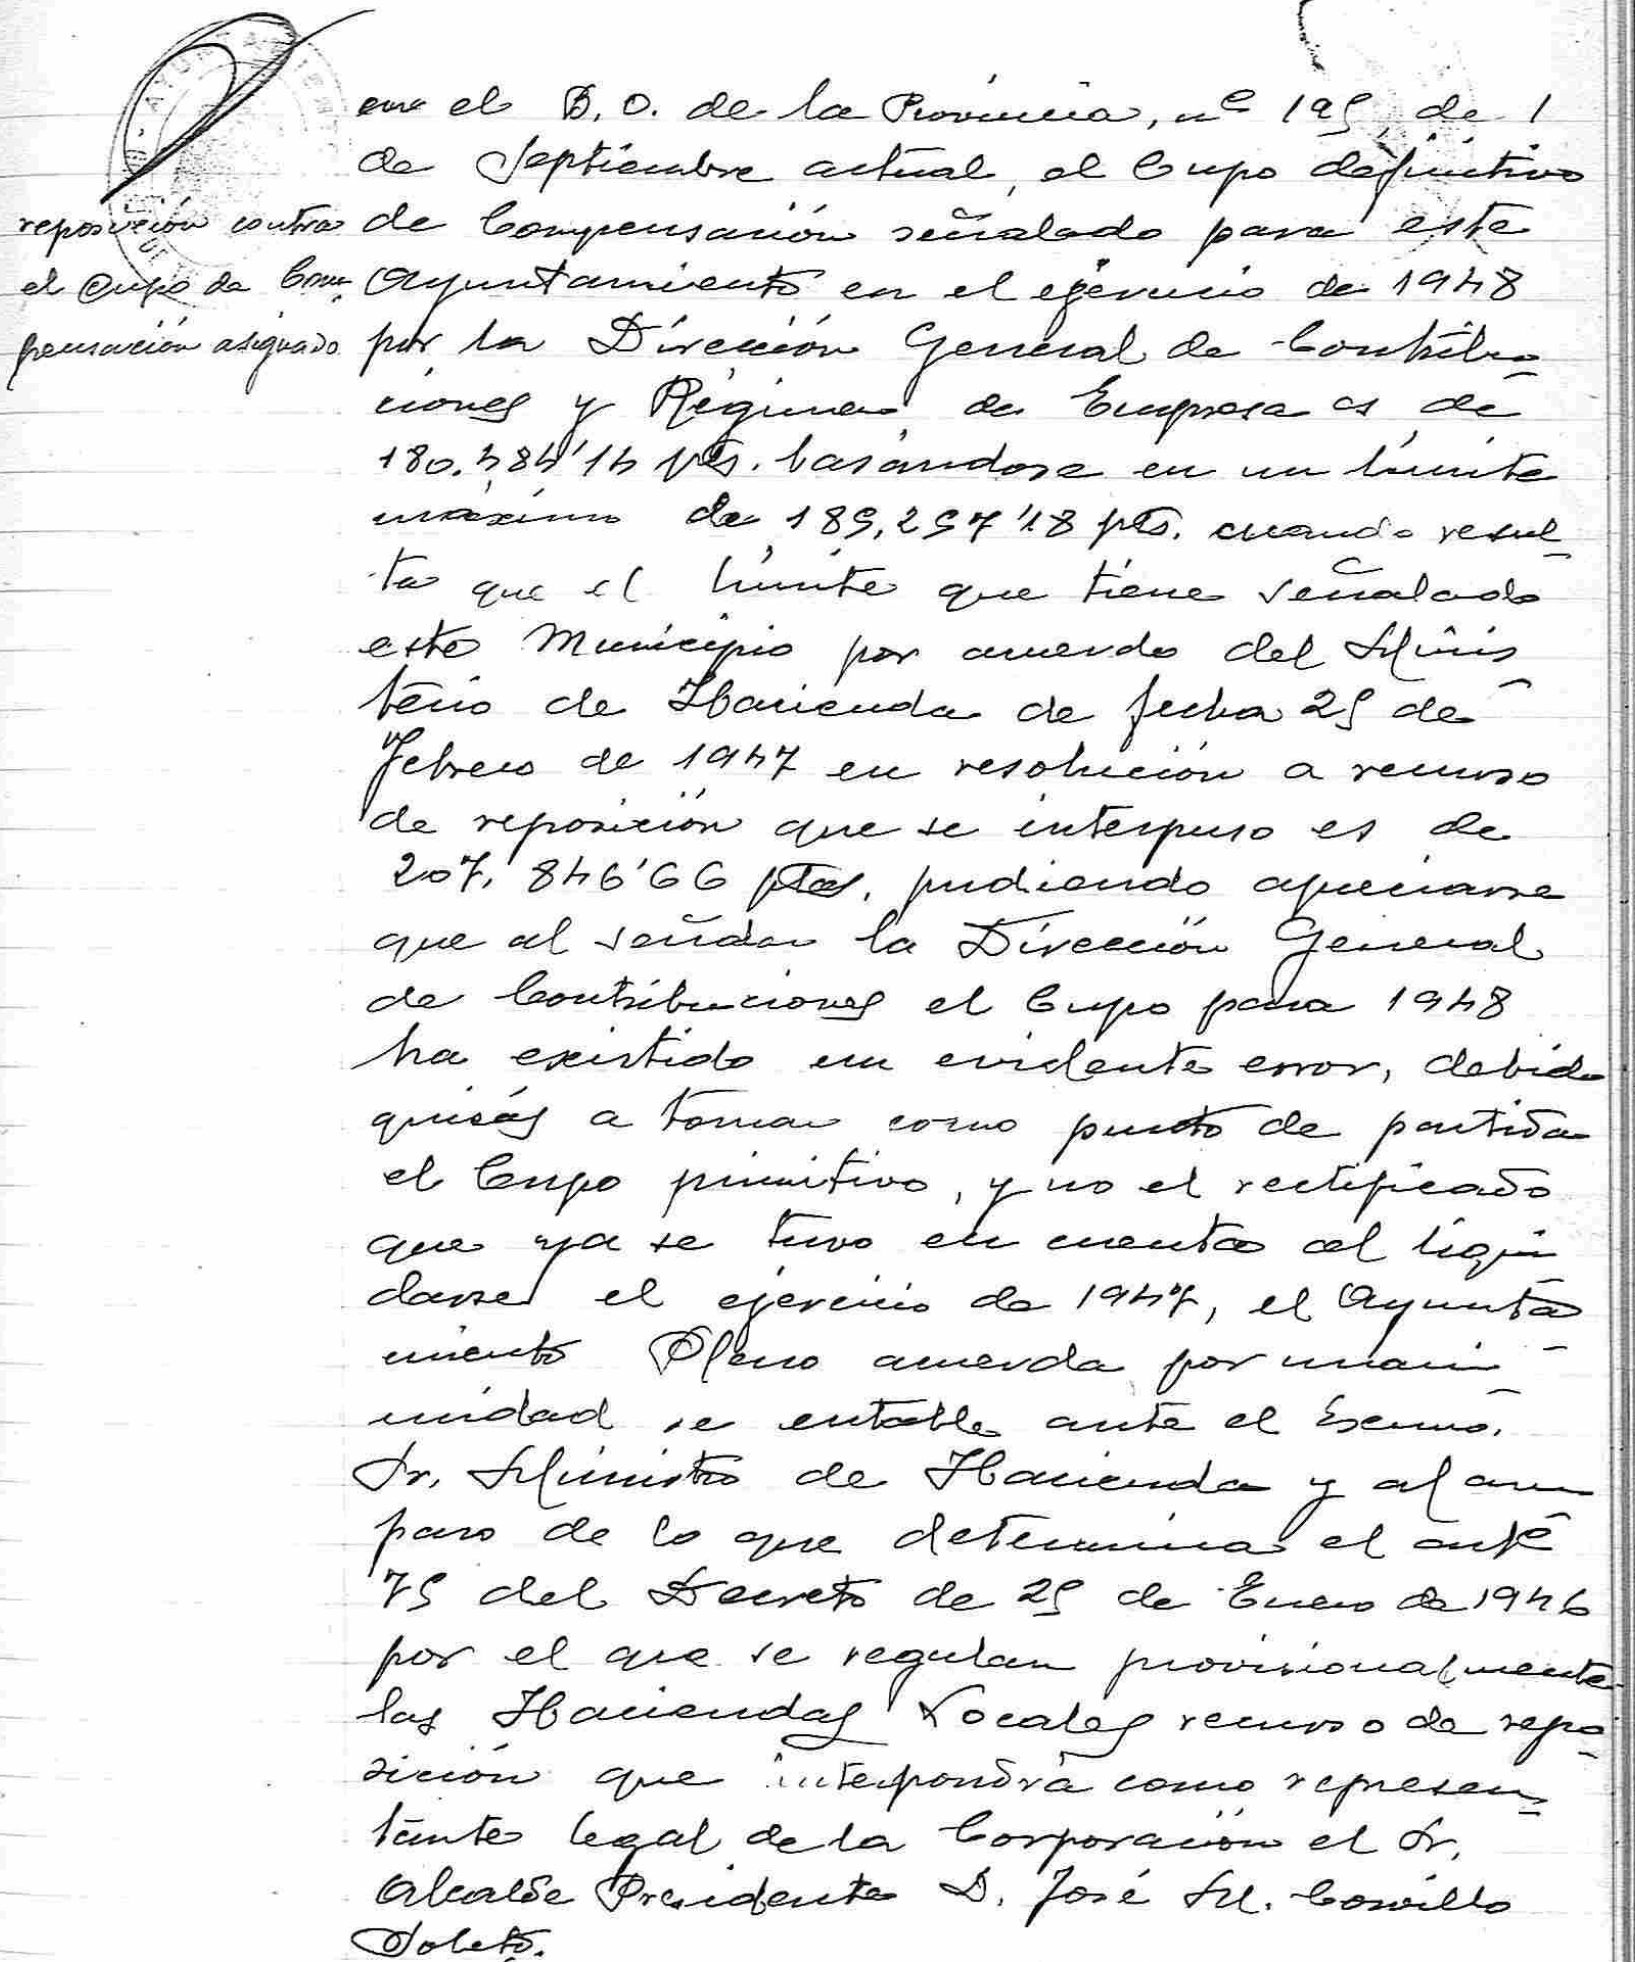 en el B. O. de la Provincia, nº 195, de 1
de Septiembre actual, el Cupo definitivo
reposición contra
el Cupo de Com-
pensación asignado
de Compensación señalado para este
Ayuntamiento en el ejercicio de 1948
por la Dirección General de Contribu-
ciones y Régimen de Empresa es de
180.484'14 pts. basándose en un límite
máximo de 189,297'18 pts. cuando resul-
ta que el límite que tiene señalado
este Municipio por acuerdo del Minis-
terio de Hacienda de fecha 25 de
Febrero de 1947 en resolución a recurso
de reposición que se interpuso es de
207.846'66 ptas, pudiendo apreciarse
que al señalar la Dirección General
de Contribuciones el Cupo para 1948
ha existido un evidente error, debido
quisás a tomar como punto de partida
el Cupo primitivo, y no el rectificado
que ya se tuvo en cuenta al liqui-
darse el ejercicio de 1947, el Ayunta-
miento Pleno acuerda por unani-
midad se entable ante el Excmo.
Sr. Ministro de Hacienda y al am-
paro de lo que determina el artº
75 del Decreto de 25 de Enero de 1946
por el que se regulan provisionalmente
las Haciendas Locales recurso de repo-
sición que interpondrá como represen-
tante legal de la Corporación el Sr.
Alcalde Presidente D. José M.